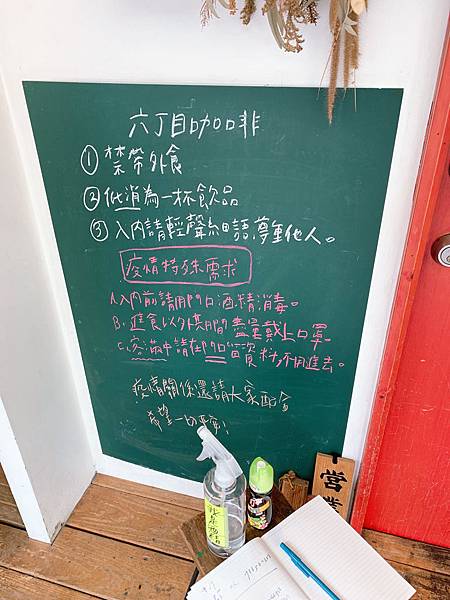 六丁目咖啡
① 禁帶外食
② 低消為一杯飲品
③ 入內請輕聲細語尊重他人。
疫情特殊需求
A.入內前請用門口酒精消毒。
B.進食以外期間盡量戴上口罩
C.客滿中請在門口留資料,不用進去。
疫情關係還請大家配合
希望一切平安!
營業